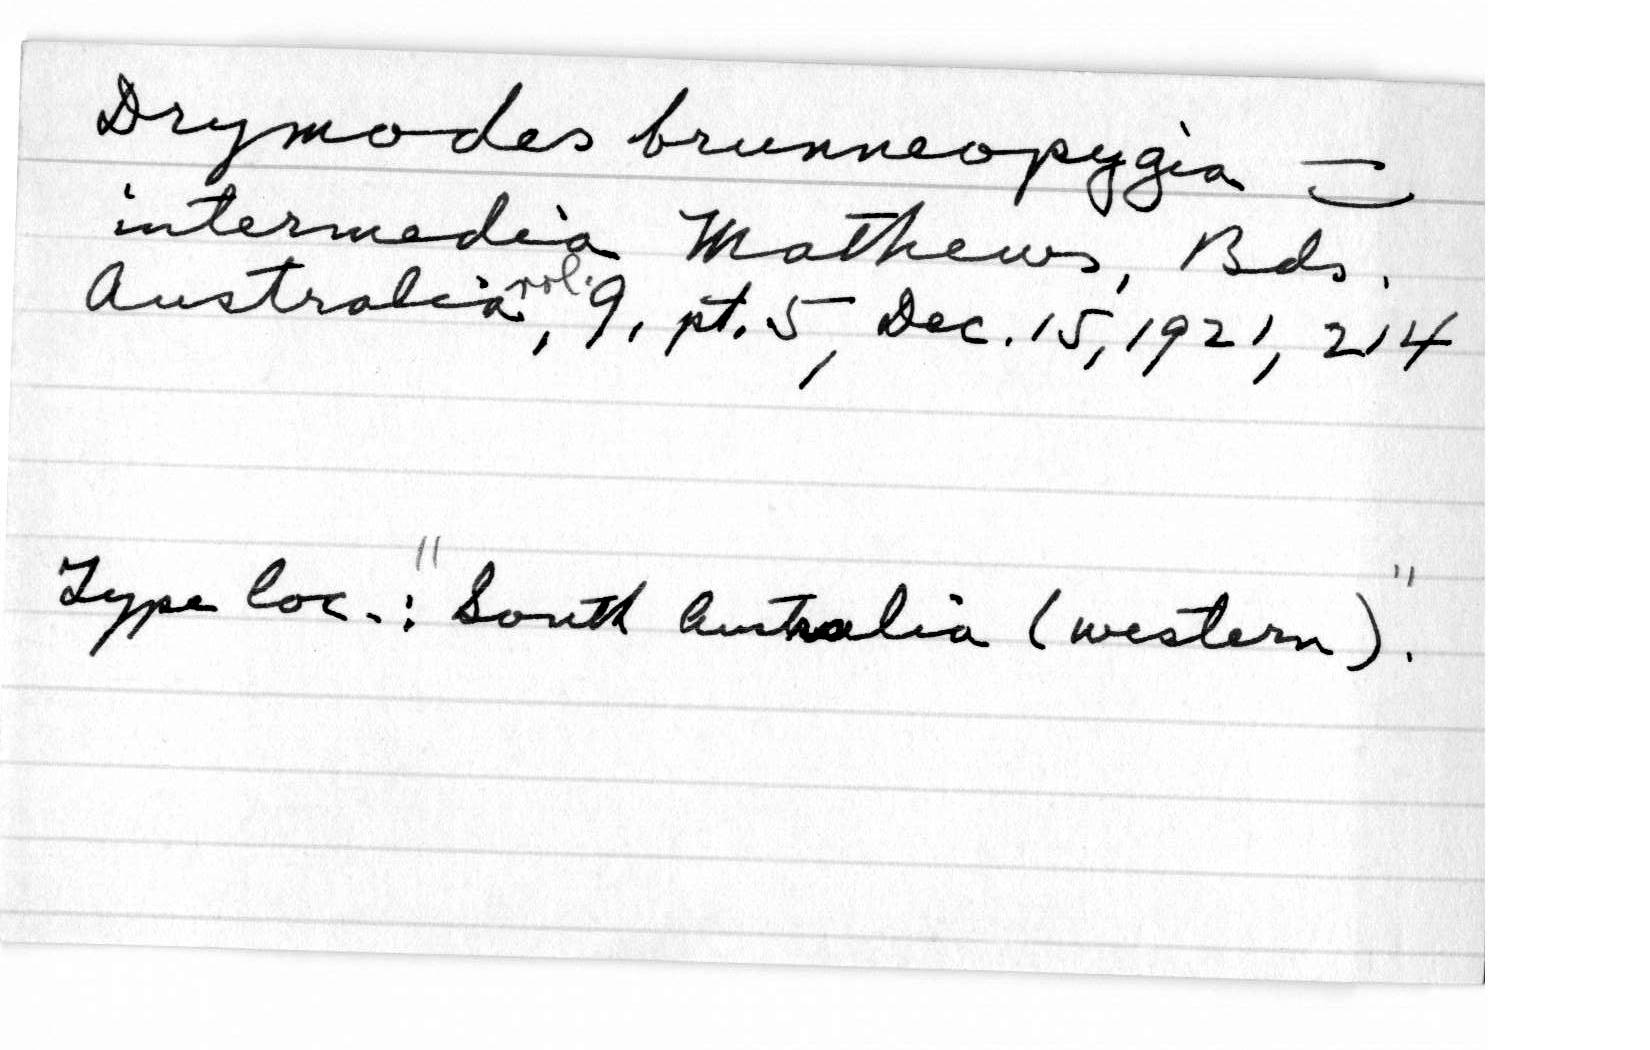 Drymodes brunneopygia
intermedia Mathews, Bds.
Australia, vol. 9, pt. 5, Dec. 15, 1921, 214
Type loc.: "South Australia (western)".